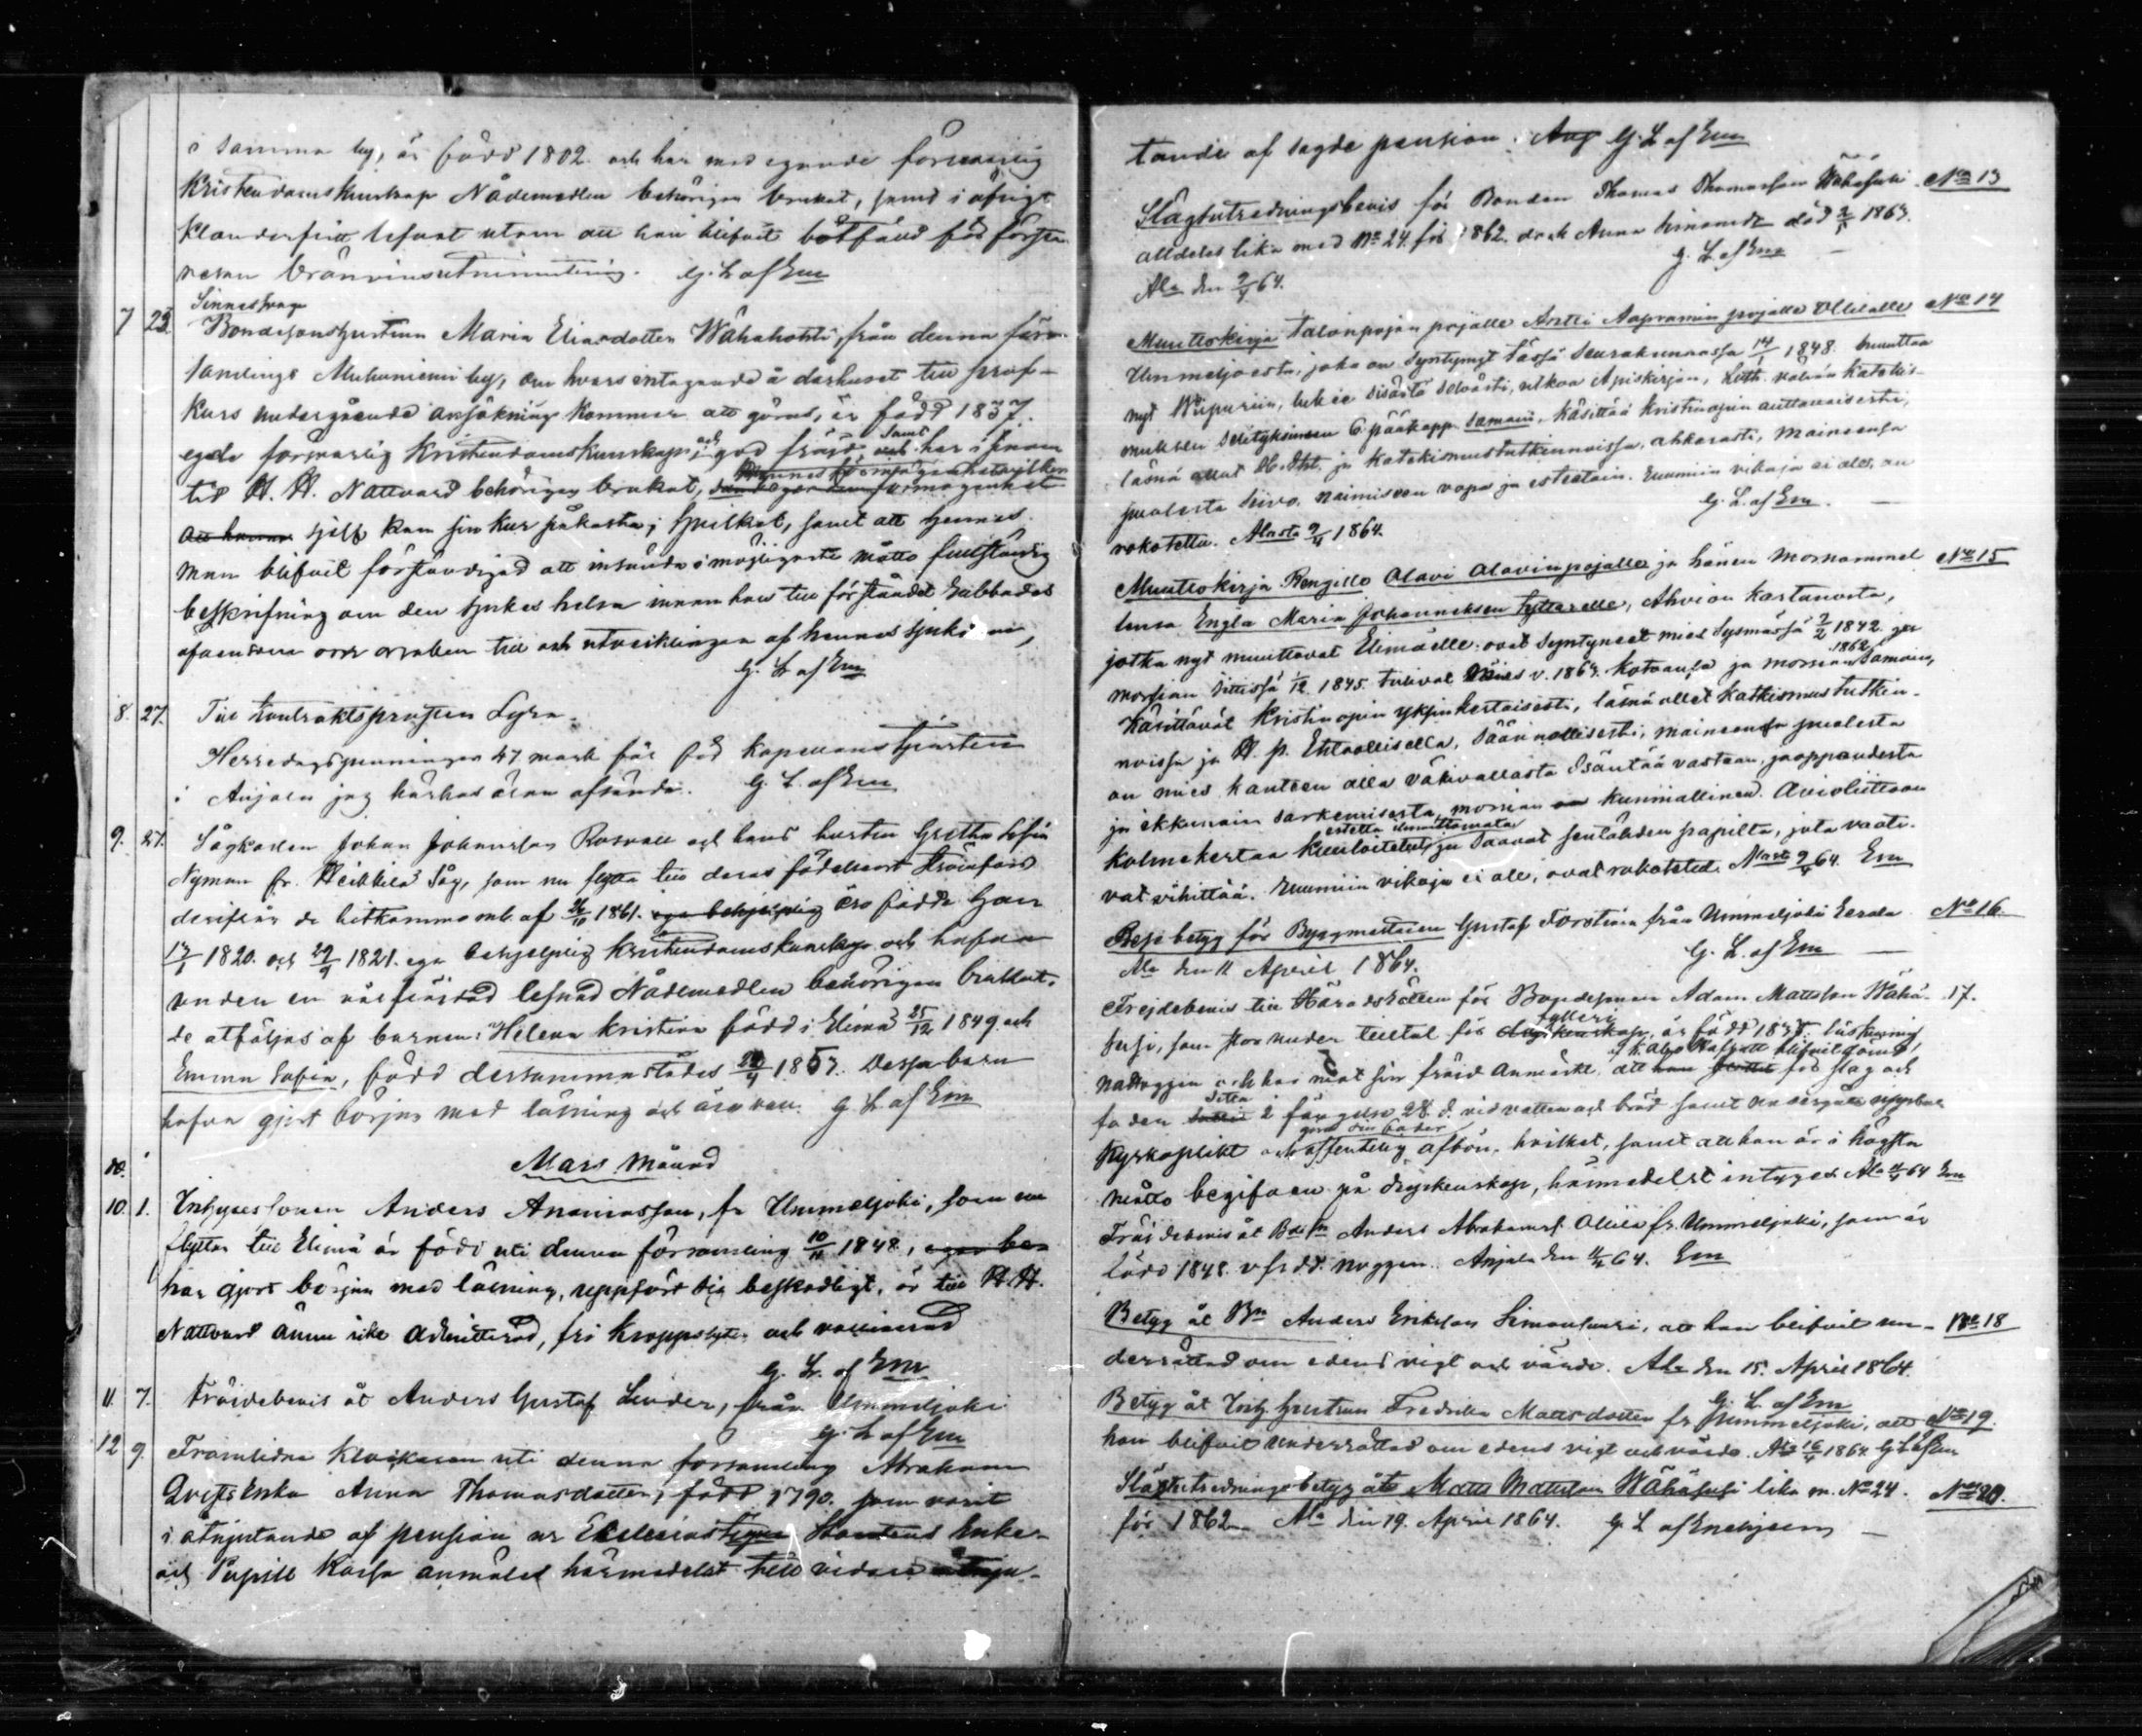 i samma by, är född 1802. och har med egande försvarlig
Kristendomskunskap Nådemedlen behörigen brukat, samt i öfrigt
klanderfritt lefvat utom att han blifvit bötfäld för första
resan bränvinsutminutering. G. L. af Em
Sinnessvaga
7 23. Bondesonshustrun Maria Eliasdotter Wähähohti, från denna för-
samlings Muhniemi by, om hvars intagande å dårhuset till
kurs undergående ansökning kommer att göras, är född 1837.
egde försvarlig Kristendomskunskap, och god fräjd, samt har i sinom
tid H. H. Nattvard behörigen brukat,
sjelf kan sin kur påkosta; hvilket, samt att hennes
man blifvit förständigad att insända i möjligaste måtto fullständig
beskrifning om den sjukes helsa innan hon till förståndet
orsaken till och utvecklingen af hennes
G. L. af Em
8. 27. Till Kontraktsprosten Lyra.
Herredagspenningen 47 mark för kapellans tjensten
i Anjala jag härhos äran afsända. G. L. af Em
9. 27. Sågkarlen Johan Johansson Rosvall och hans hustru Gretha Sofia
Nyman fr. Heikkilä Såg, som nu flytta till deras födelseort Strömfors
derifrån de hitkommo mb af 26/10 1861. äro födde han
13/1 1820. och 29/9 1821. ega behjelplig Kristendomskunskap och hafva
under en välfräjdad lefnad Nådemedlen behörigen brukat.
de åtföljas af barnen: Helena Kristina född i Elimä 25/12 1849 och
Emma Sofia, född dersammastädes 20/4 1857. Dessa barn
hafva gjort början med läsning och äro vacc. G. L. af Em
Mars Månad
10. 1. Inhysessonen Anders Ananiasson, fr Ummeljoki, som nu
flyttar till Elimä är född uti denna församling 10/11 1848,
har gjort början med läsning, uppfört sig beskedligt, är till H. H.
Nattvard ännu icke admitterad, fri kroppslyten och vaccinerad
G. L. af Em
11. 7. Fräjdebevis åt Anders Gustaf Linder, från Ummeljoki
G. L. af Em
12 9. Framlidne Klockaren uti denna församling Abraham
Enka Anna Thomasdotter, född 1790. som varit
i åtnjutande af pension ur Ecclesiastique Staatens Enke-
och Pupill Kassa anmäles härmedelst till vidare åtnju-
tande af sagde pension. G. L. af Em
Slägtutredningsbevis för Bonden Thomas Thomasson Wähäsusi No 13
alldeles lika med No 24. för 1862. dock Anna död 2/1 1863.
Ala den 9/4 64. G. L. af Em
Muuttokirja Talonpojan pojalle Antti Aapramin pojalle Ollilalle No 14
Ummeljoesta, joka on syntynyt tässä Seurakunnassa 14/1 1848. muuttaa
nyt Wiipuriin, lukee sisästä selvästi, ulkoa Apiskirjan, Luth. vähän Katekis-
muksen Selityksineen 6. pääkapp. samoin, käsittää kristinopin auttavaisesti,
läsnä ollut H. Eht. ja Katekismustutkinnoissa, ahkerasti, maineensa
puolesta siivo. naimiseen vapa ja esteetöin. Ruumiin vikoja ei ole, on
rokotettu. Alasta 9/4 1864. G. L. af Em.
Muuttokirja Rengille Olavi Olavinpojalle ja hänen morsiammel No 15
lensa Engla Maria Johanneksen tyttärelle, Ahvion kartanosta,
jotka nyt muuttavat Elimäelle. ovat syntyneet mies Sysmässä 3/2 1842. ja
morsian Iitissä 1/12 1845. tulivat mies v. 1863. ja morsian 1862 samoin,
Käsittävät kristinopin yksinkertaisesti, läsnä ollet katkismus tutkin-
noissa ja H. p. Ehtoollisella, säännöllisesti, maineensa puolesta
on mies kanteen alla väkivallasta Isäntää vastaan,
ja ikkunain sarkemisesta, morsian kunniallinen. Avioliittoon
kolmekertaa kuulutetut, estettä ilmoittamata ja saavat sentähden papilta, jota vaati-
vat vihittää. Ruumiin vikoja ei ole, ovat rokotetut. Alasta 9/4 64. Em
Rese betyg för Byggmästaren Gustaf Forström från Ummeljoki Eerola No 16.
Ala den 11 April 1864. G. L. af Em
Frejdebevis till Häradsrätten för Bondesonen Adam Mattsson Wähä- 17.
susi, som står under tilltal för fylleri, är född 1838. läskunnig
nattvarden och har mot sin fräjd anmärkt, att af K. Åbo Hofrätt blifvit dömd, för slag och
sitta i fängelse 28 d. vid vatten och bröd samt undergå uppenbar
kyrkoplikt och göra sin fader offentelig afbön, hvilket, samt att han är i högsta
måtto begifven på dryckenskap, härmedelst intygas Ala 11/4 64 Em
Fräjdebevis åt Bdes Anders Abrahams. Ollila fr. Ummeljoki, som är
född 1848. Anjala den 11/4 64. Em
Betyg åt Bn Anders Eriksson Simonsuusi, att han blifvit un- No 18
derrättad om edens vigt och värde. Ala den 15. April 1864.
G. L. af Em
Betyg åt Inh. hustrun Fredrika Mattsdotter fr Ummeljoki, att No 19.
hon blifvit underrättad om edens vigt och värde. Ala 16/4 1864. G. L. af Em
Slägtutredningsbetyg åt Matts Mattsson Wähäsusi lika m. No 24. No 20.
för 1862. Ala den 19. April 1864. G. L. af Enehjelm